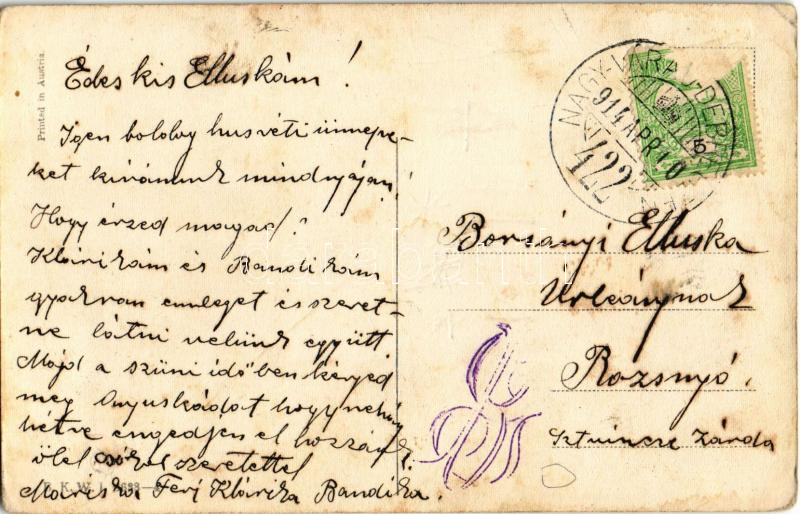 Printed in Austria.
Édes kis Elluskám!
Igen boldog husvéti ünnepe-
ket kivánunk mindnyájan!
Hogy érzed magad?
Klárikám és Bandikám
gyakran emleget és szeret-
ne látni velünk együtt
Majd a szüni időben kérjed
meg Anyuskádat hogy néhány
hétre engedjen el hozzánk
ölel csókol szeretettel
Mariska Feri Klárika Bandika.
B. K. W. I.
NAGYVÁRAD-DEBRE
914 APR 10
422
5
Borsányi Elluska
Urleánynak
Rozsnyó.
Zárda